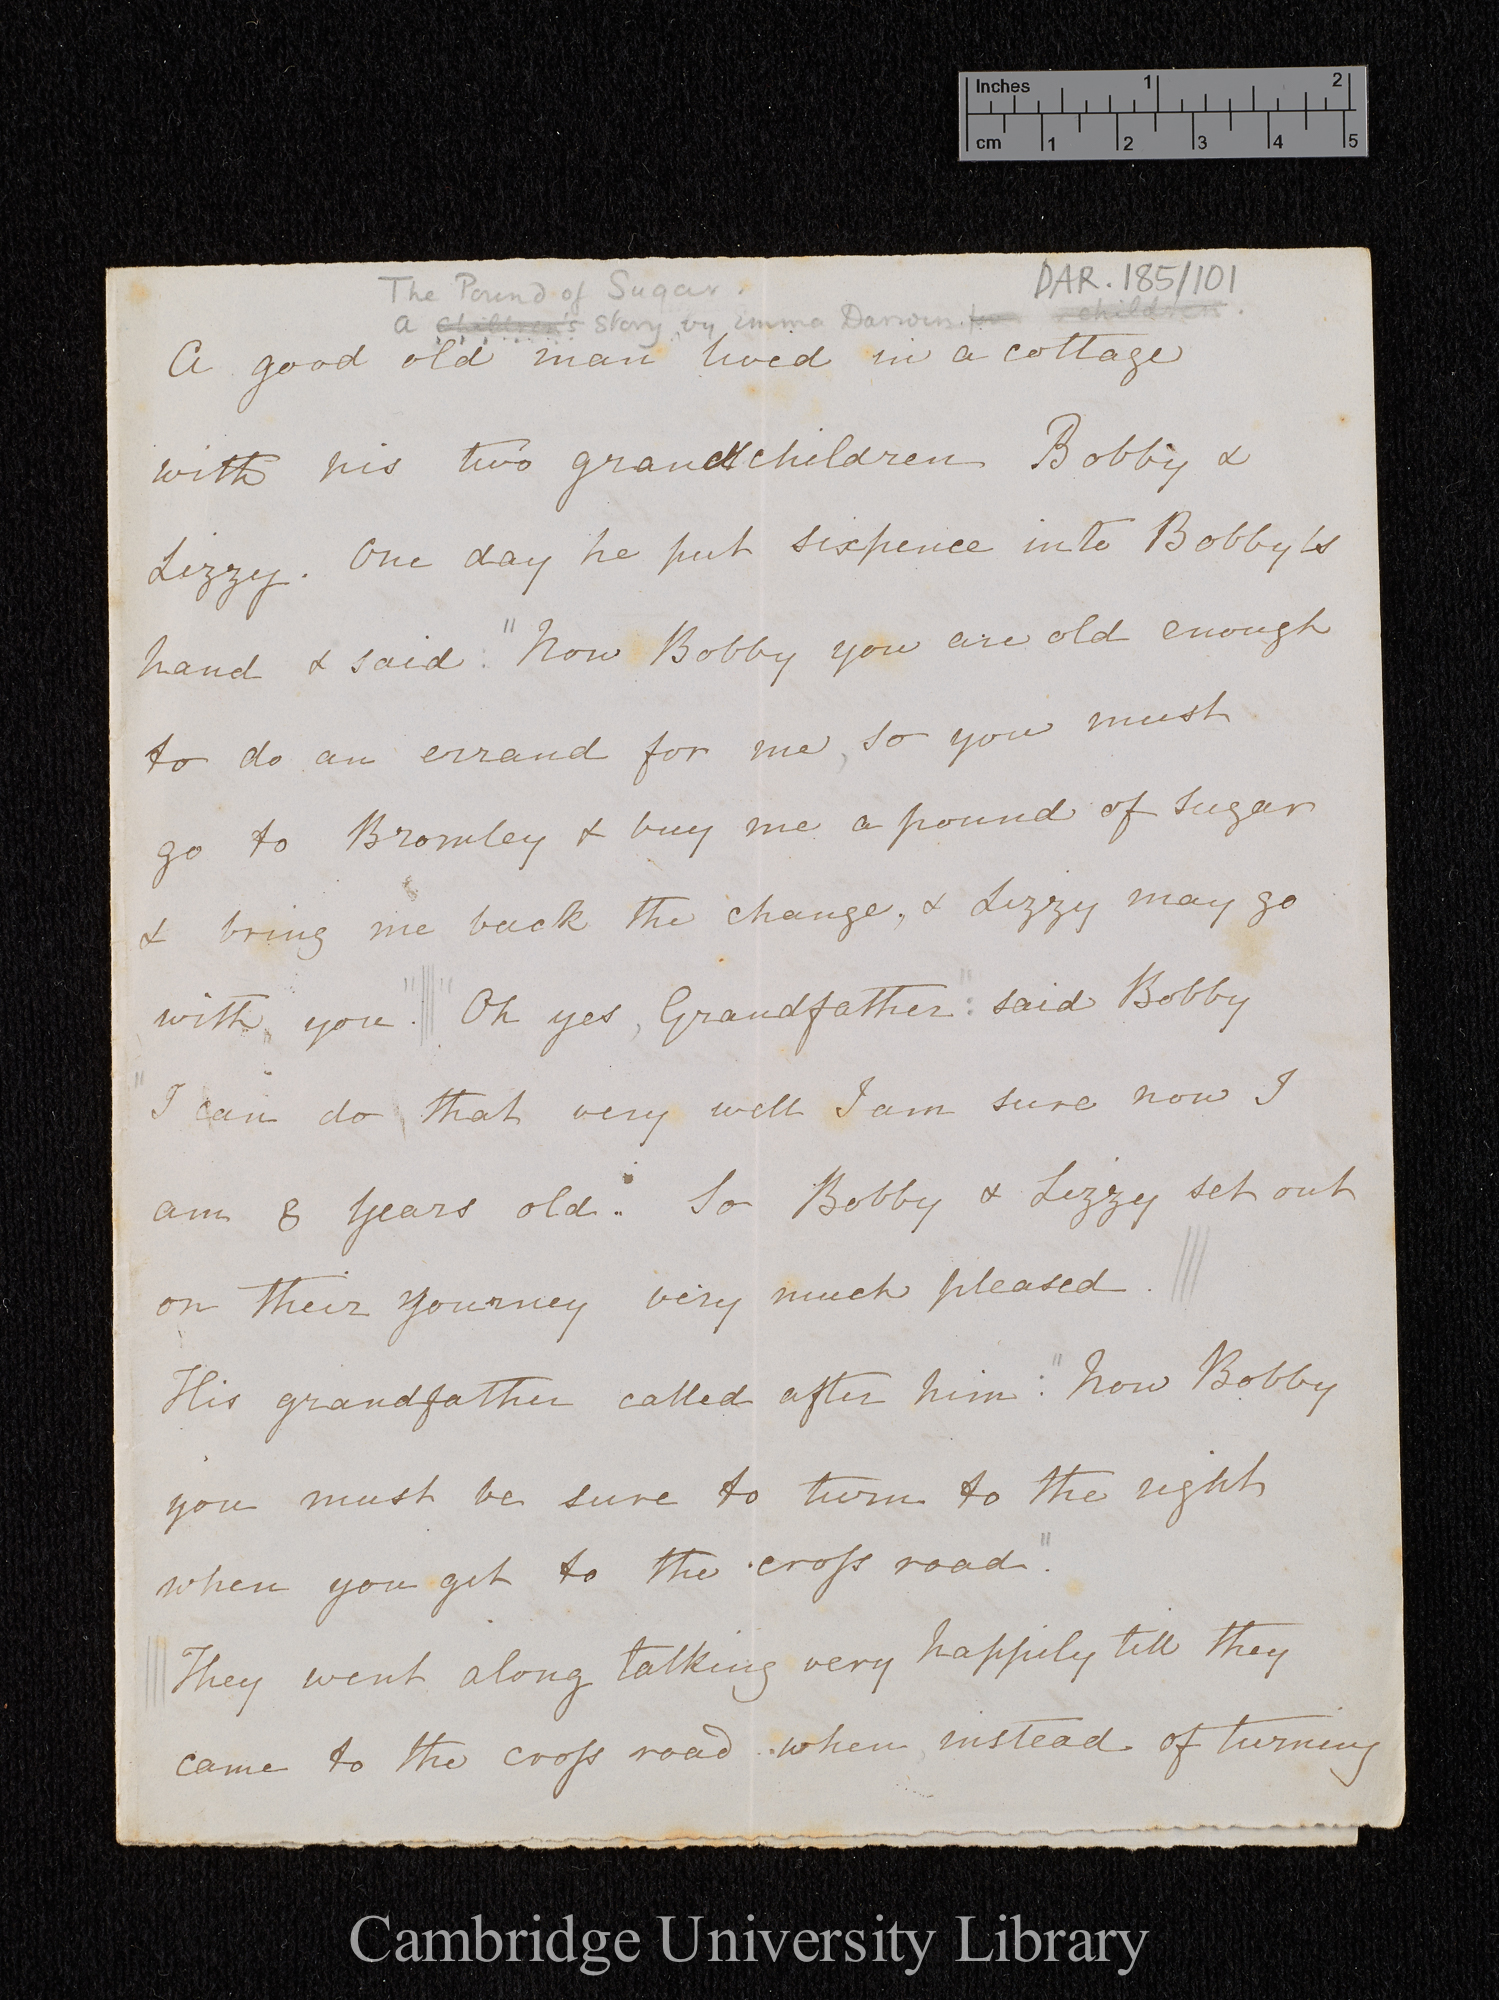 Inches 1 2
cm 1 2 3 4 5
The Pound of Sugar.
DAR. 185/101
a Children's Story by Emma Darwin for children.
A good old man lived in a cottage
with his two grandchildren Bobby &
Lizzy. One day he put sixpence into Bobby's
hand & said: "Now Bobby you are old enough
to do an errand for me, so you must
go to Bromley & buy me a pound of sugar
& bring me back the change, & Lizzy may go
with you." "Oh yes, Grandfather": said Bobby
"I can do that very well I am sure now I
am 8 years old." So Bobby & Lizzy set out
on their journey very much pleased.
His grandfather called after him: "Now Bobby
you must be sure to turn to the right
when you get to the croſs road."
They went along talking very happily till they
came to the croſs road when instead of turning
Cambridge University Library